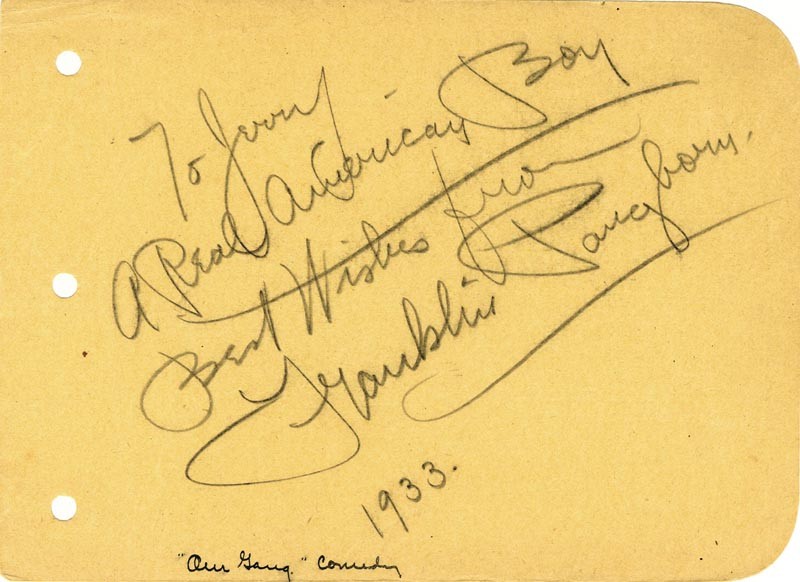 To Jerry
A Real American Boy
Best Wishes from
Franklin Pangborn.
1933.
"Our Gang." Comedy